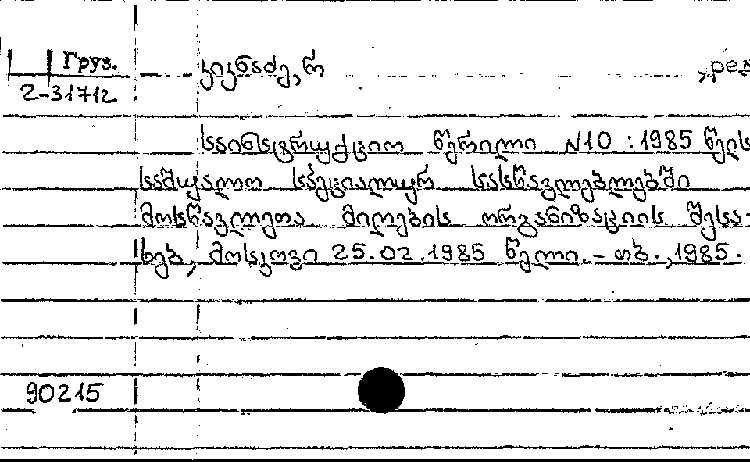 Груз. კიკნაძე, რ ,ред
2-31712
საინსტრუქციო წერილი N10 : 1985 წელს
საშუალო სპეციალურ სასწავლებლებში
მოსწავლეთა მიღების ორგანიზაციის შესა-
ხებ, მოსკოვი 25.02.1985 წელი. - თბ., 1985.
90215